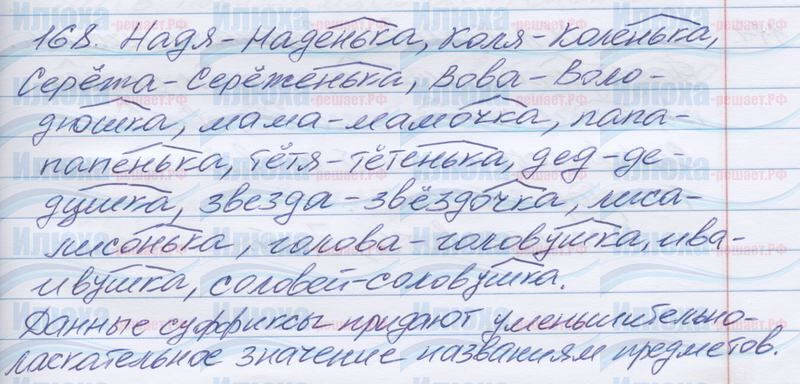 168. Надя-Наденька, Коля-Коленька,
Серёжа-Серёженька, Вова-Воло-
дюшка, мама-мамочка, папа-
папенька, тётя-тётенька, дед-де-
душка, звезда-звёздочка, лиса-
лисонька, голова-головушка, ива-
ивушка, соловей-соловушка.
Данные суффиксы придают уменьшительно-
ласкательное значение названиям предметов.